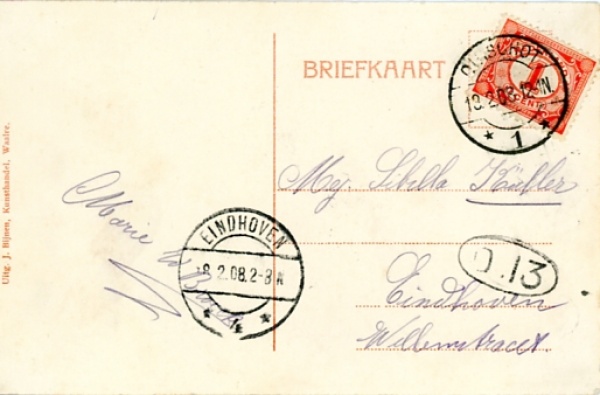 Uitg. J. Bijnen, Kunsthandel, Waalre.
BRIEFKAART
OIRSCHOT
18.2.08.12-1N.
* 1 *
1
CENT
Mej. Sibilla Kübler
Eindhoven
Willemstraat
D.13
EINDHOVEN
18.2.08.2-3N
* 1 *
Marie